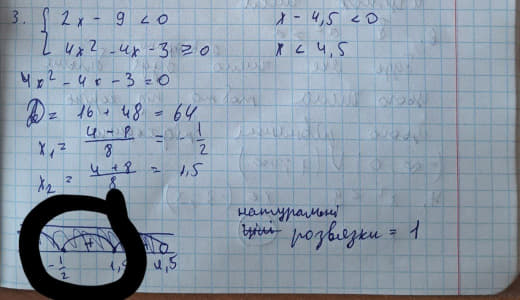 3. { 2x - 9 < 0
4x² - 4x - 3 ≥ 0
x - 4,5 < 0
x < 4,5
4x² - 4x - 3 = 0
D = 16 + 48 = 64
x₁ = (4 - 8)/8 = - 1/2
x₂ = (4 + 8)/8 = 1,5
+
- 1/2 1,5 4,5
натуральні
розвязки = 1